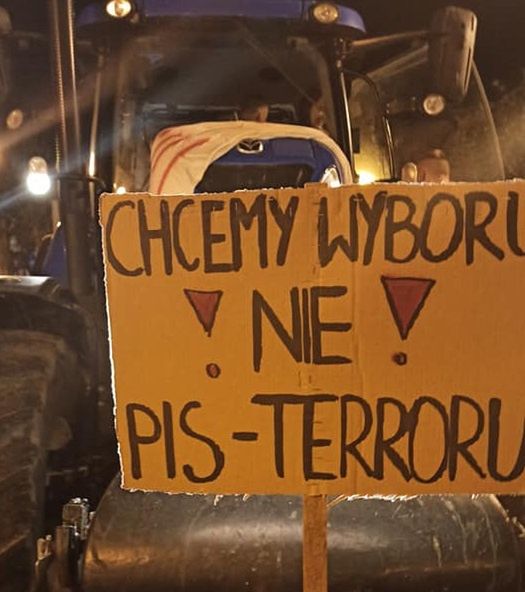 CHCEMY WYBORU
! NIE !
PIS-TERRORU